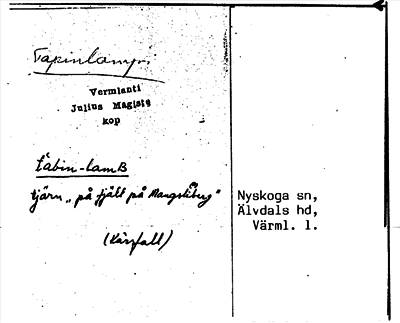 Tapinlampi
Vermlanti
Julius Mägiste
kop
tȧbin-lamB
tjärn „på fjäll på Mangsliberg"
(Kärfall)
Nyskoga sn,
Älvdals hd,
Värml. l.